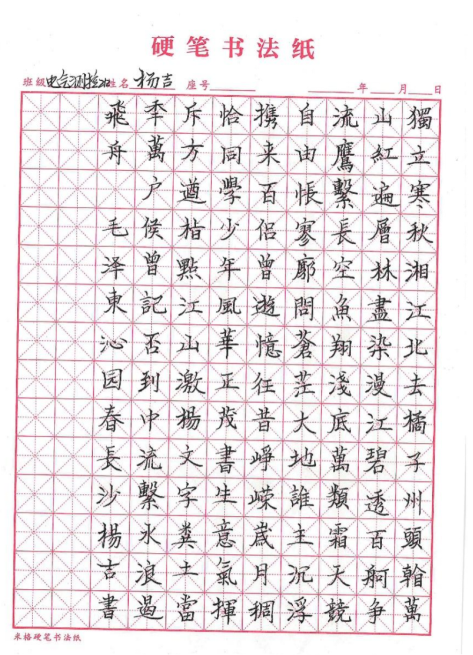 硬笔书法纸
班级电气测控112姓名杨吉 座号 年 月 日
獨立寒秋湘江北去橘子州頭翰萬
山紅遍層林盡染漫江碧透百舸争
流鷹繫長空魚翔淺底萬類霜天競
自由悵寥廓問蒼茫大地誰主沉浮
携来百侣曾遊憶往昔崢嶸歲月稠
恰同學少年風華正茂書生意氣揮
斥方遒指點江山激揚文字糞土當
季萬户侯曾記否到中流繫水浪遏
飛舟 毛泽東沁园春長沙楊吉書
米格硬笔书法纸